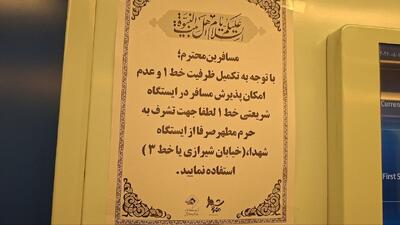 السلام علیکم یا اهل بیت النبوة
مسافرین محترم؛
با توجه به تکمیل ظرفیت خط ۱ و عدم
امکان پذیرش مسافر در ایستگاه
شریعتی خط ۱ لطفا جهت تشرف به
حرم مطهر صرفا از ایستگاه
شهدا،(خیابان شیرازی یا خط ۳ )
استفاده نمایید.
Current
First S